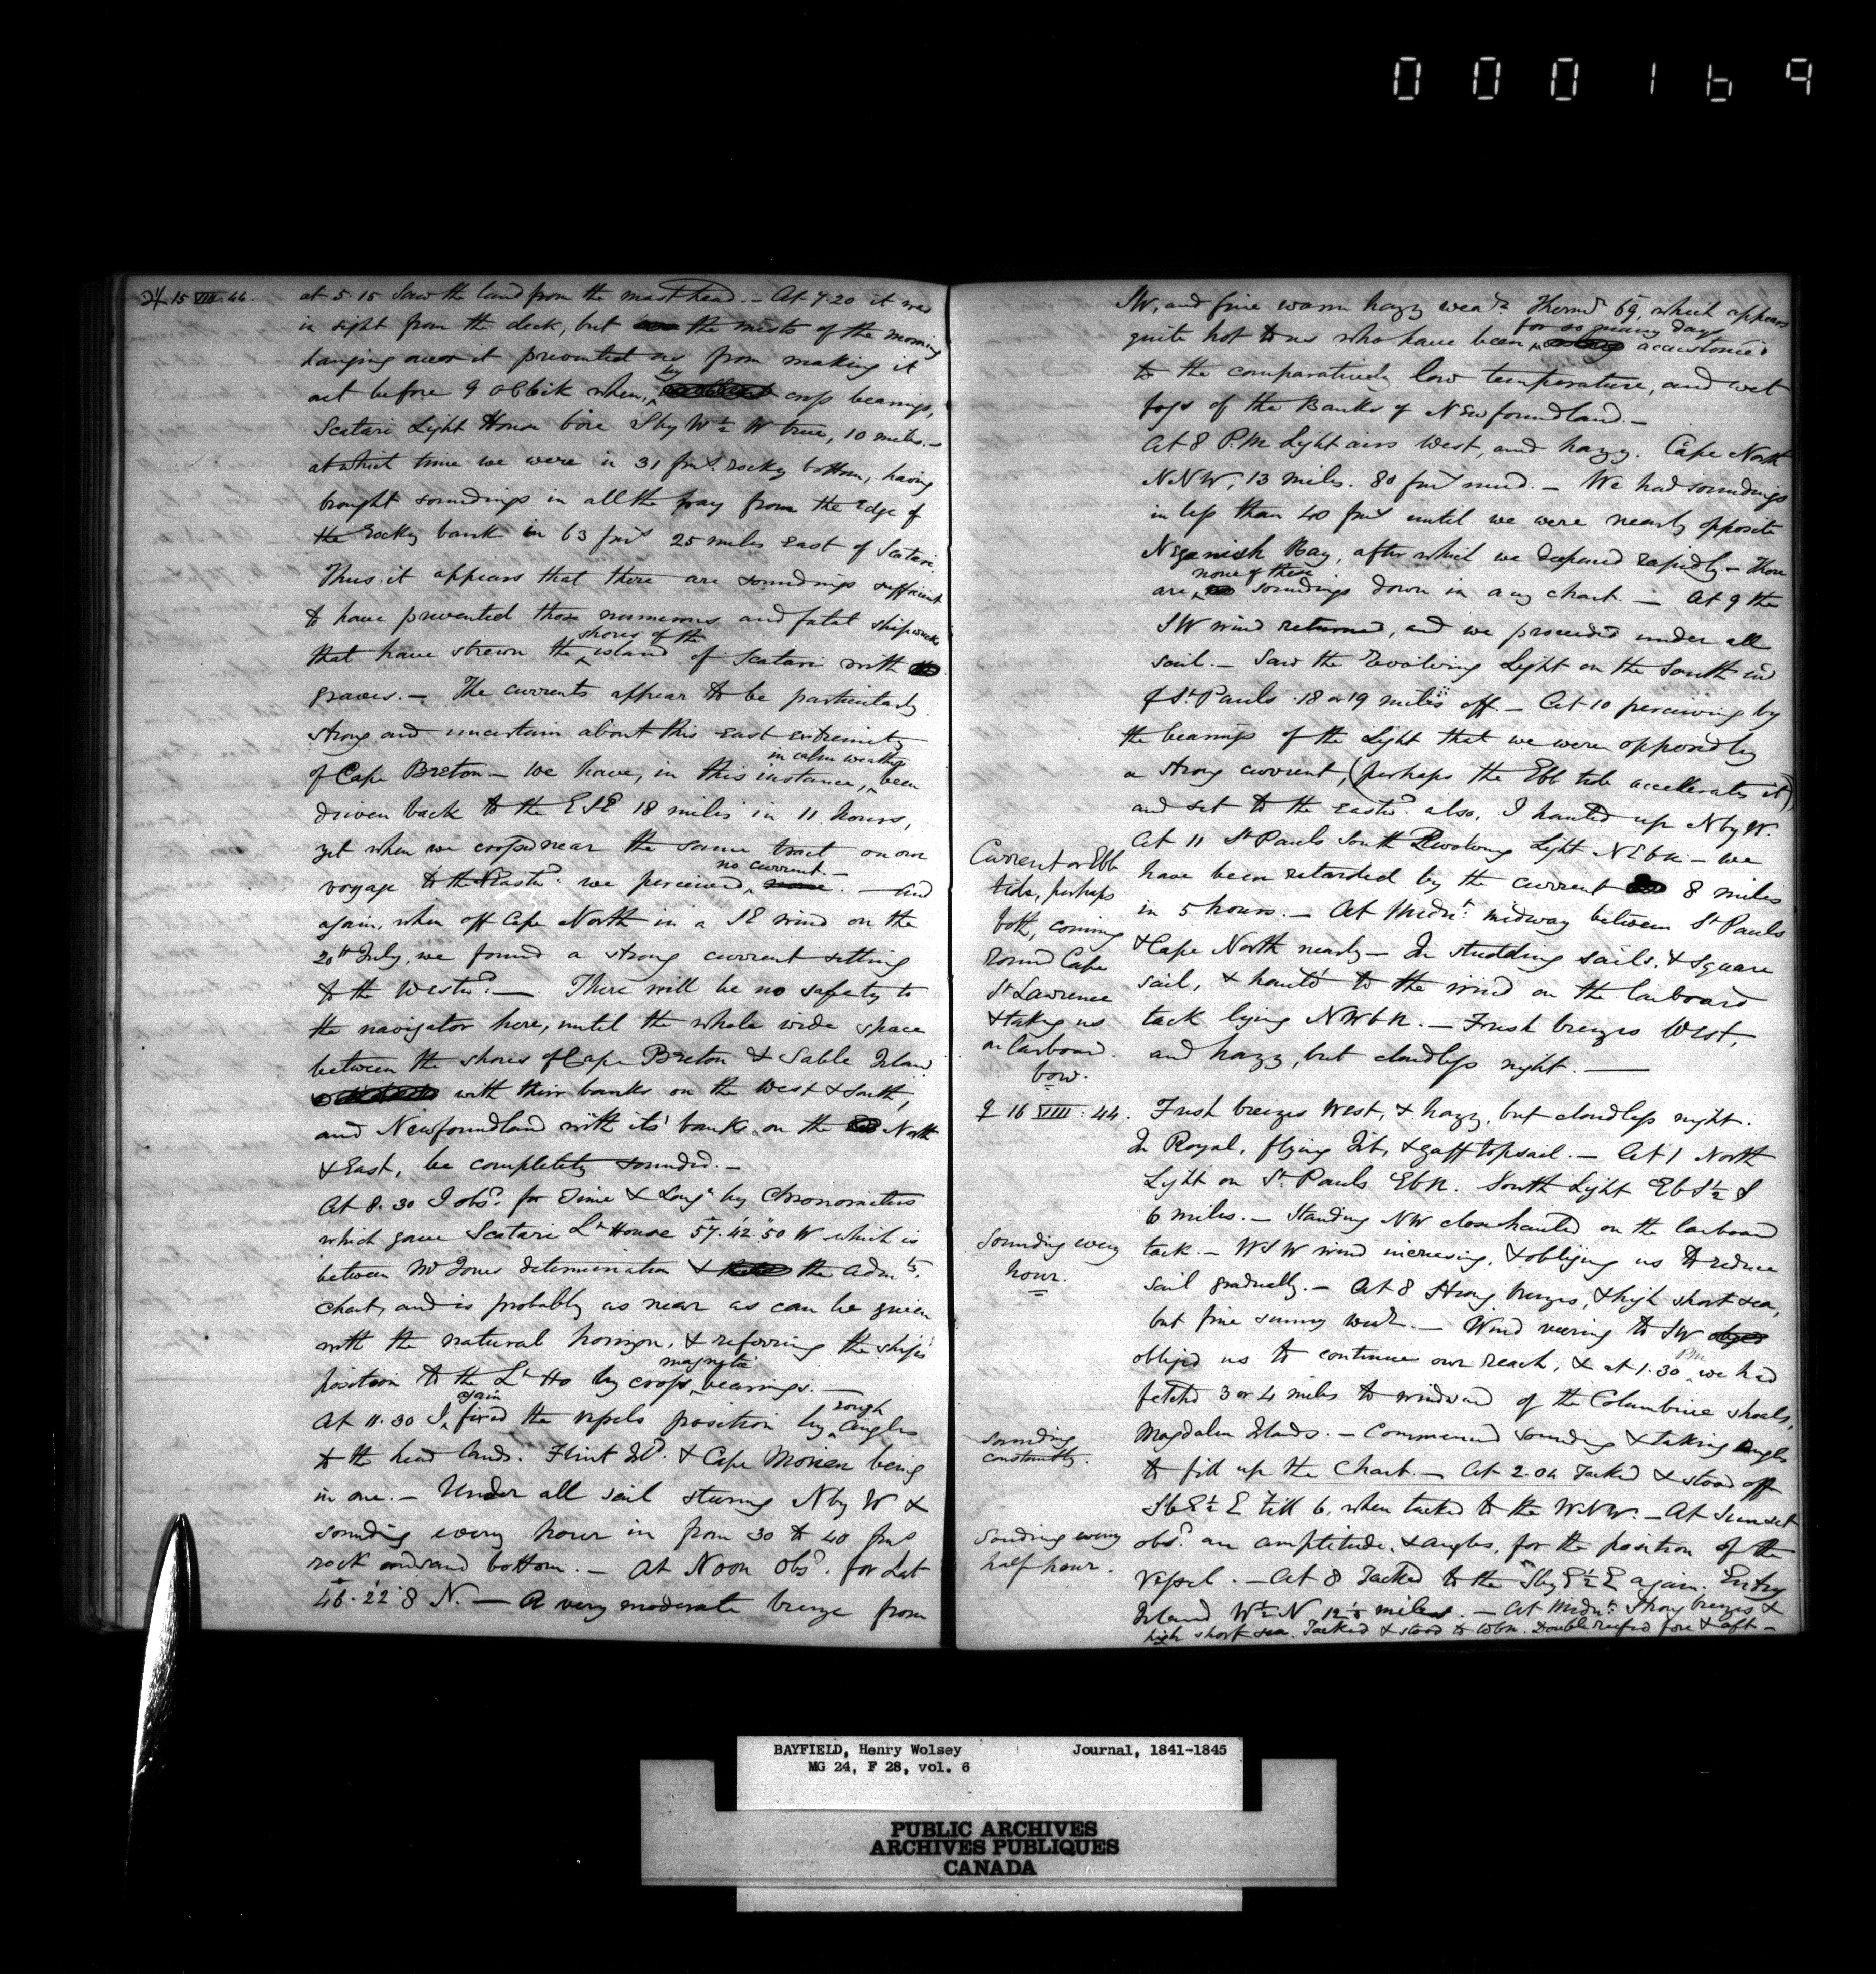 000169
♃ 15 VIII. 44.
at 5.15 Saw the land from the mast head. – At 7.20 it was
in sight from the deck, but the mists of the morning
hanging over it prevented us from making it
out before 9 oClock when, by cross bearings,
Scatari Light House bore S by W ½ W true, 10 miles. –
at which time we were in 31 fms. rocky bottom, having
brought soundings in all the way from the Edge of
the Rocky bank in 63 fms 25 miles East of Scatari.
Thus it appears that there are soundings sufficient
to have prevented those numerous and fatal shipwrecks
that have strewn the shores of the island of Scatari with
graves. – The currents appear to be particularly
strong and uncertain about this East extremity
of Cape Breton – We have, in this instance, in calm weather been
driven back to the ESE 18 miles in 11 hours,
yet when we crossed near the same tract on our
voyage to the Eastd. we perceived no current. – And
again, when off Cape North in a SE wind on the
20th July, we found a strong current setting
to the Westwd. – There will be no safety to
the navigator here, until the whole wide space
between the shores of Cape Breton & Sable Island
with their banks on the West & South,
and Newfoundland with its' banks on the North
& East, be completely sounded. –
At 8.30 I obsd. for Time & Longe by Chronometers
which gave Scatari Lt House 57.42.50 W which is
between Mr Jones determination & the Admts.
Chart, and is probably as near as can be given
with the natural horizon, & referring the ship's
position to the Lt Ho by cross magnetic bearings. –
At 11.30 I again fixed the vessels position by rough angles
to the head lands. Flint Id. & Cape Morien being
in one. – Under all sail steering N by W &
sounding every hour in from 30 to 40 fms
rock and sand bottom. – At Noon Obsd. for Lat
46.22.8 N. – A very moderate breeze from
SW, and fine warm hazy wear. Thermr 69, which appears
quite hot to us who have been for so many days accustomed
to the comparatively low temperature, and wet
fogs of the Banks of Newfoundland. –
At 8 P.M Light airs West, and hazy. Cape North
NNW, 13 miles. 80 fms mud. – We had soundings
in less than 40 fms until we were nearly opposite
Neganish Bay, after which we deepened rapidly – There
are none of these soundings down in any chart. – At 9 the
SW wind returned, and we proceeded under all
sail. – Saw the Revolving Light on the South end
of St. Pauls 18 or 19 miles off. – At 10 perceiving by
the bearings of the Light that we were opposed by
a strong current, (perhaps the Ebb tide accellerates it)
and set to the eastd. also, I hauled up N by W.
At 11 St Pauls South Revolving Light NEbN – we
have been retarded by the current 8 miles
in 5 hours. – At Midnt. midway between St Pauls
& Cape North nearly – In studding sails, & square
sail, & hauled to the wind on the larboard
tack lying NWbN. – Fresh breezes West,
and hazy, but cloudless night. –
Current or Ebb
tide, perhaps
both, coming
round Cape
St Lawrence
& taking us
on larboard
bow.
♀ 16 VIII : 44.
Fresh breezes West, & hazy, but cloudless night.
In Royal, flying Jib, & gaff topsail. – At 1 North
Light on St. Pauls EbN. South Light EbS½S
6 miles. – Standing NW closehauled on the larboard
tack. – WSW wind increasing, & obliging us to reduce
sail gradually. – At 8 Strong breezes, & high short sea,
but fine sunny wear. – Wind veering to SW
obliged us to continue our reach, & at 1.30 PM we had
fetched 3 or 4 miles to windward of the Columbine shoals,
Magdalen Islands. – Commenced sounding & taking angles
to fill up the Chart. – At 2.04 Tacked & stood off
SbE½E till 6, when tacked to the WNW. – At Sunset
obsd. an amplitude, & angles, for the position of the
Vessel. – At 8 Tacked to the S by E½E again. Entry
Island W½N 12⅓ miles. – At Midnt. Strong breezes &
high short sea. Tacked & stood to WbN. Double reefed fore & aft –
Sounding every
hour.
Sounding
constantly.
Sounding every
half hour.
BAYFIELD, Henry Wolsey Journal, 1841-1845
MG 24, F 28, vol. 6
PUBLIC ARCHIVES
ARCHIVES PUBLIQUES
CANADA